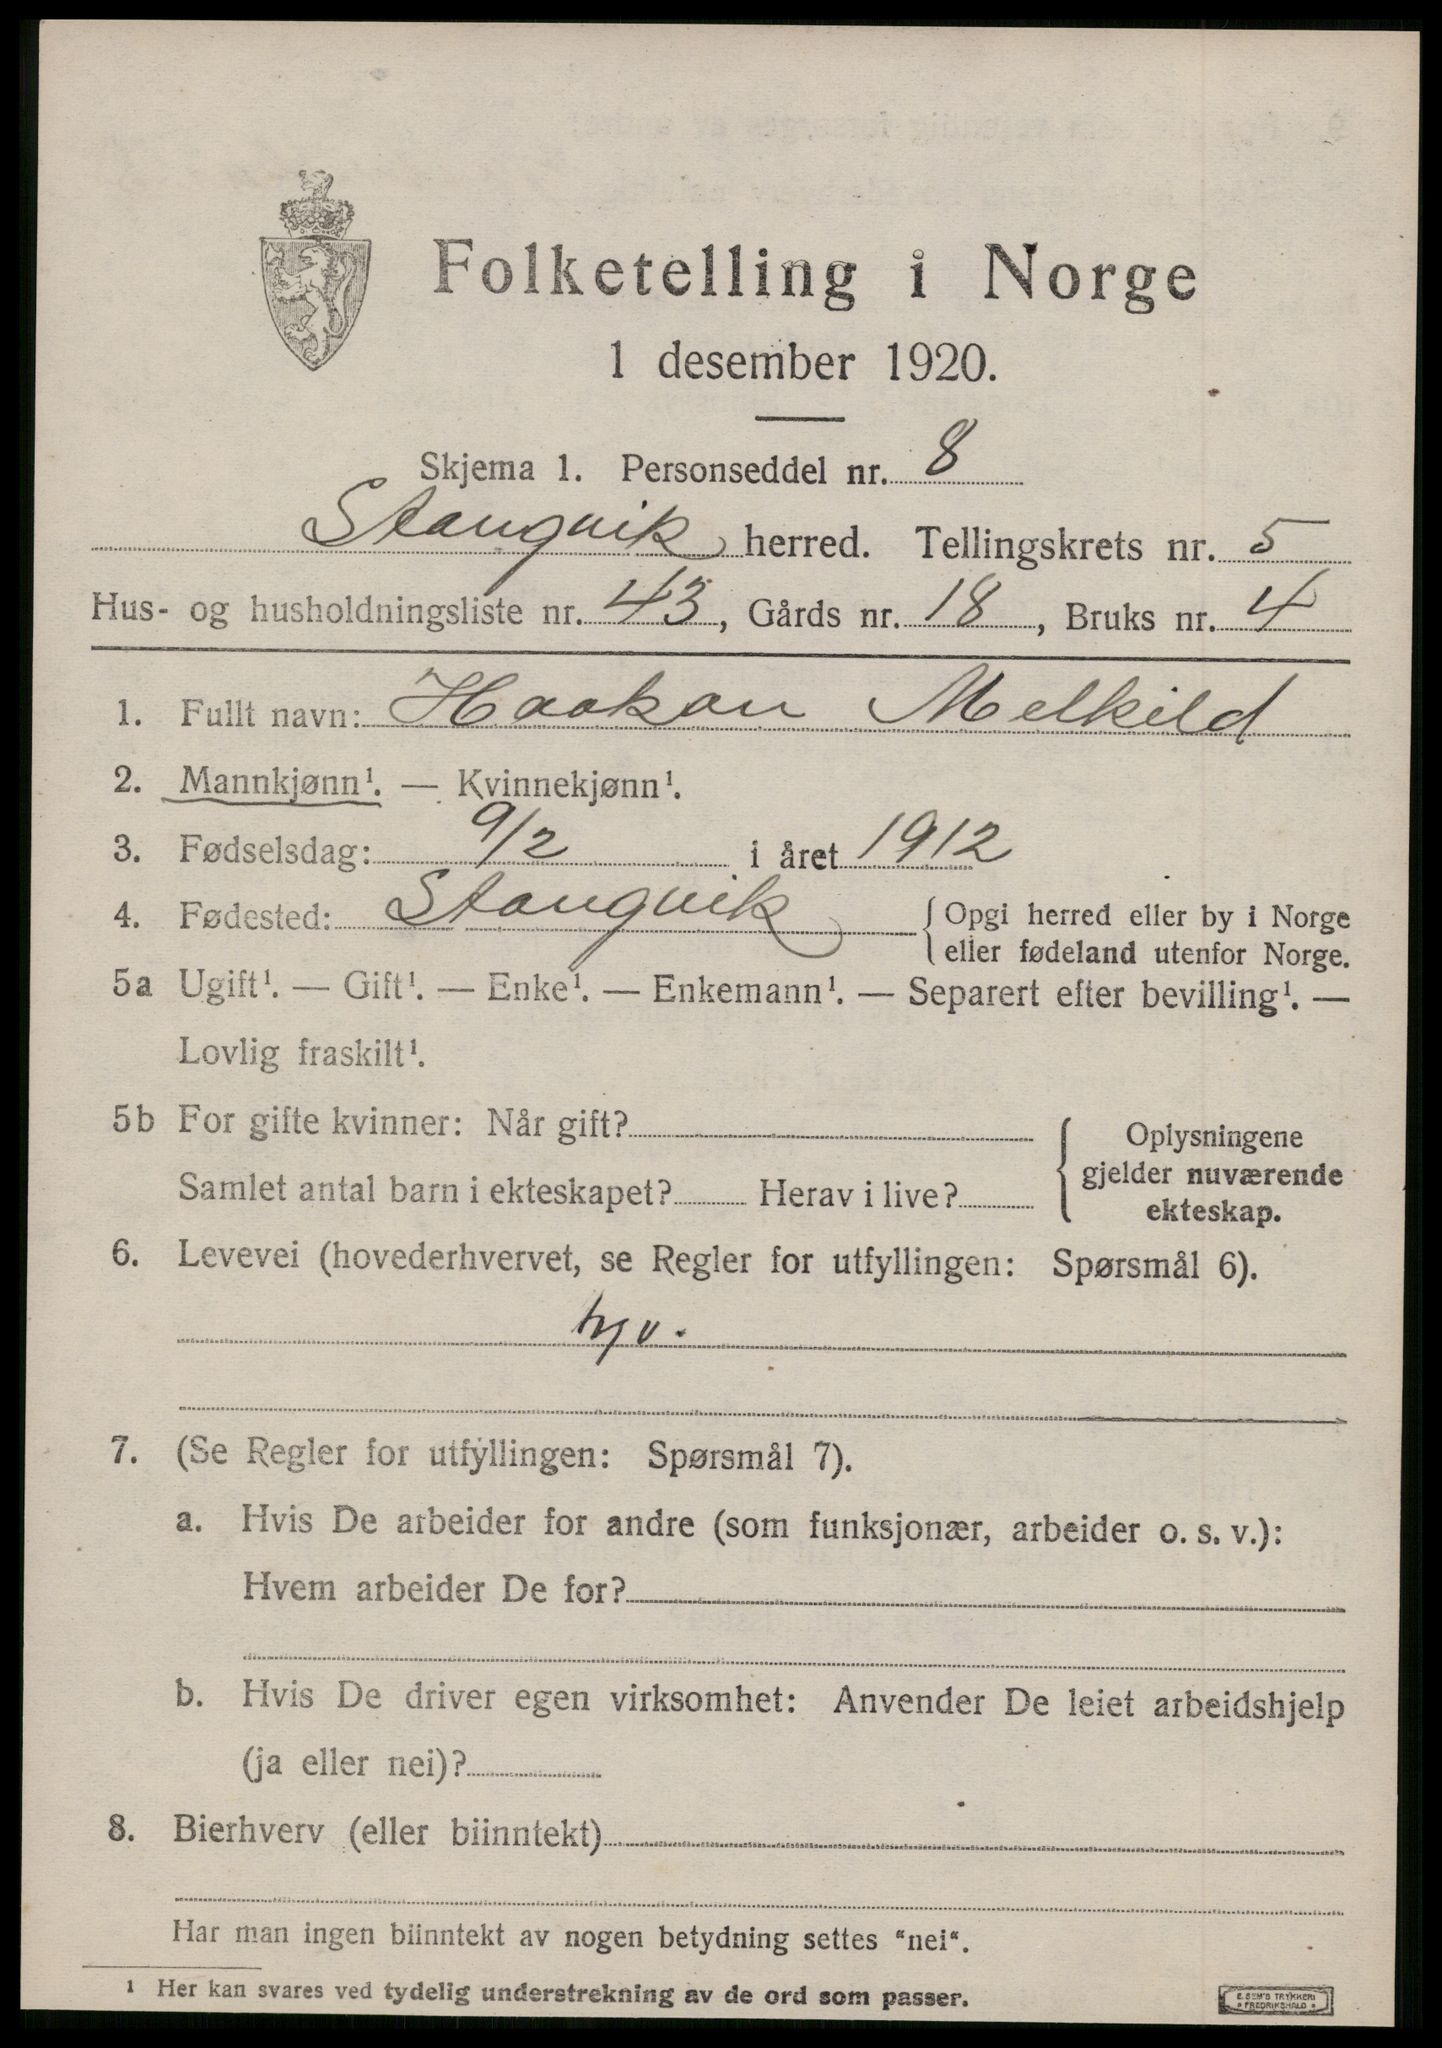 Folketelling i Norge
1 desember 1920.
Skjema 1. Personseddel nr. 8
Stangvik herred. Tellingskrets nr. 5
Hus- og husholdningsliste nr. 43, Gårds nr. 18, Bruks nr. 4
1. Fullt navn: Haakon Melkild
2. Mannkjønn¹. — Kvinnekjønn¹.
3. Fødselsdag: 9/2 i året 1912
4. Fødested: Stangvik { Opgi herred eller by i Norge
eller fødeland utenfor Norge.
5a Ugift¹. — Gift¹. — Enke¹. — Enkemann¹. — Separert efter bevilling¹. —
Lovlig fraskilt¹.
5b For gifte kvinner: Når gift?
Samlet antal barn i ekteskapet? Herav i live?
{ Oplysningene
gjelder nuværende
ekteskap.
6. Levevei (hovederhvervet, se Regler for utfyllingen: Spørsmål 6).
7. (Se Regler for utfyllingen: Spørsmål 7).
a. Hvis De arbeider for andre (som funksjonær, arbeider o. s. v.):
Hvem arbeider De for?
b. Hvis De driver egen virksomhet: Anvender De leiet arbeidshjelp
(ja eller nei)?
8. Bierhverv (eller biinntekt)
Har man ingen biinntekt av nogen betydning settes "nei".
1 Her kan svares ved tydelig understrekning av de ord som passer.
E. SEM'S TRYKKERI
* FREDRIKSHALD *